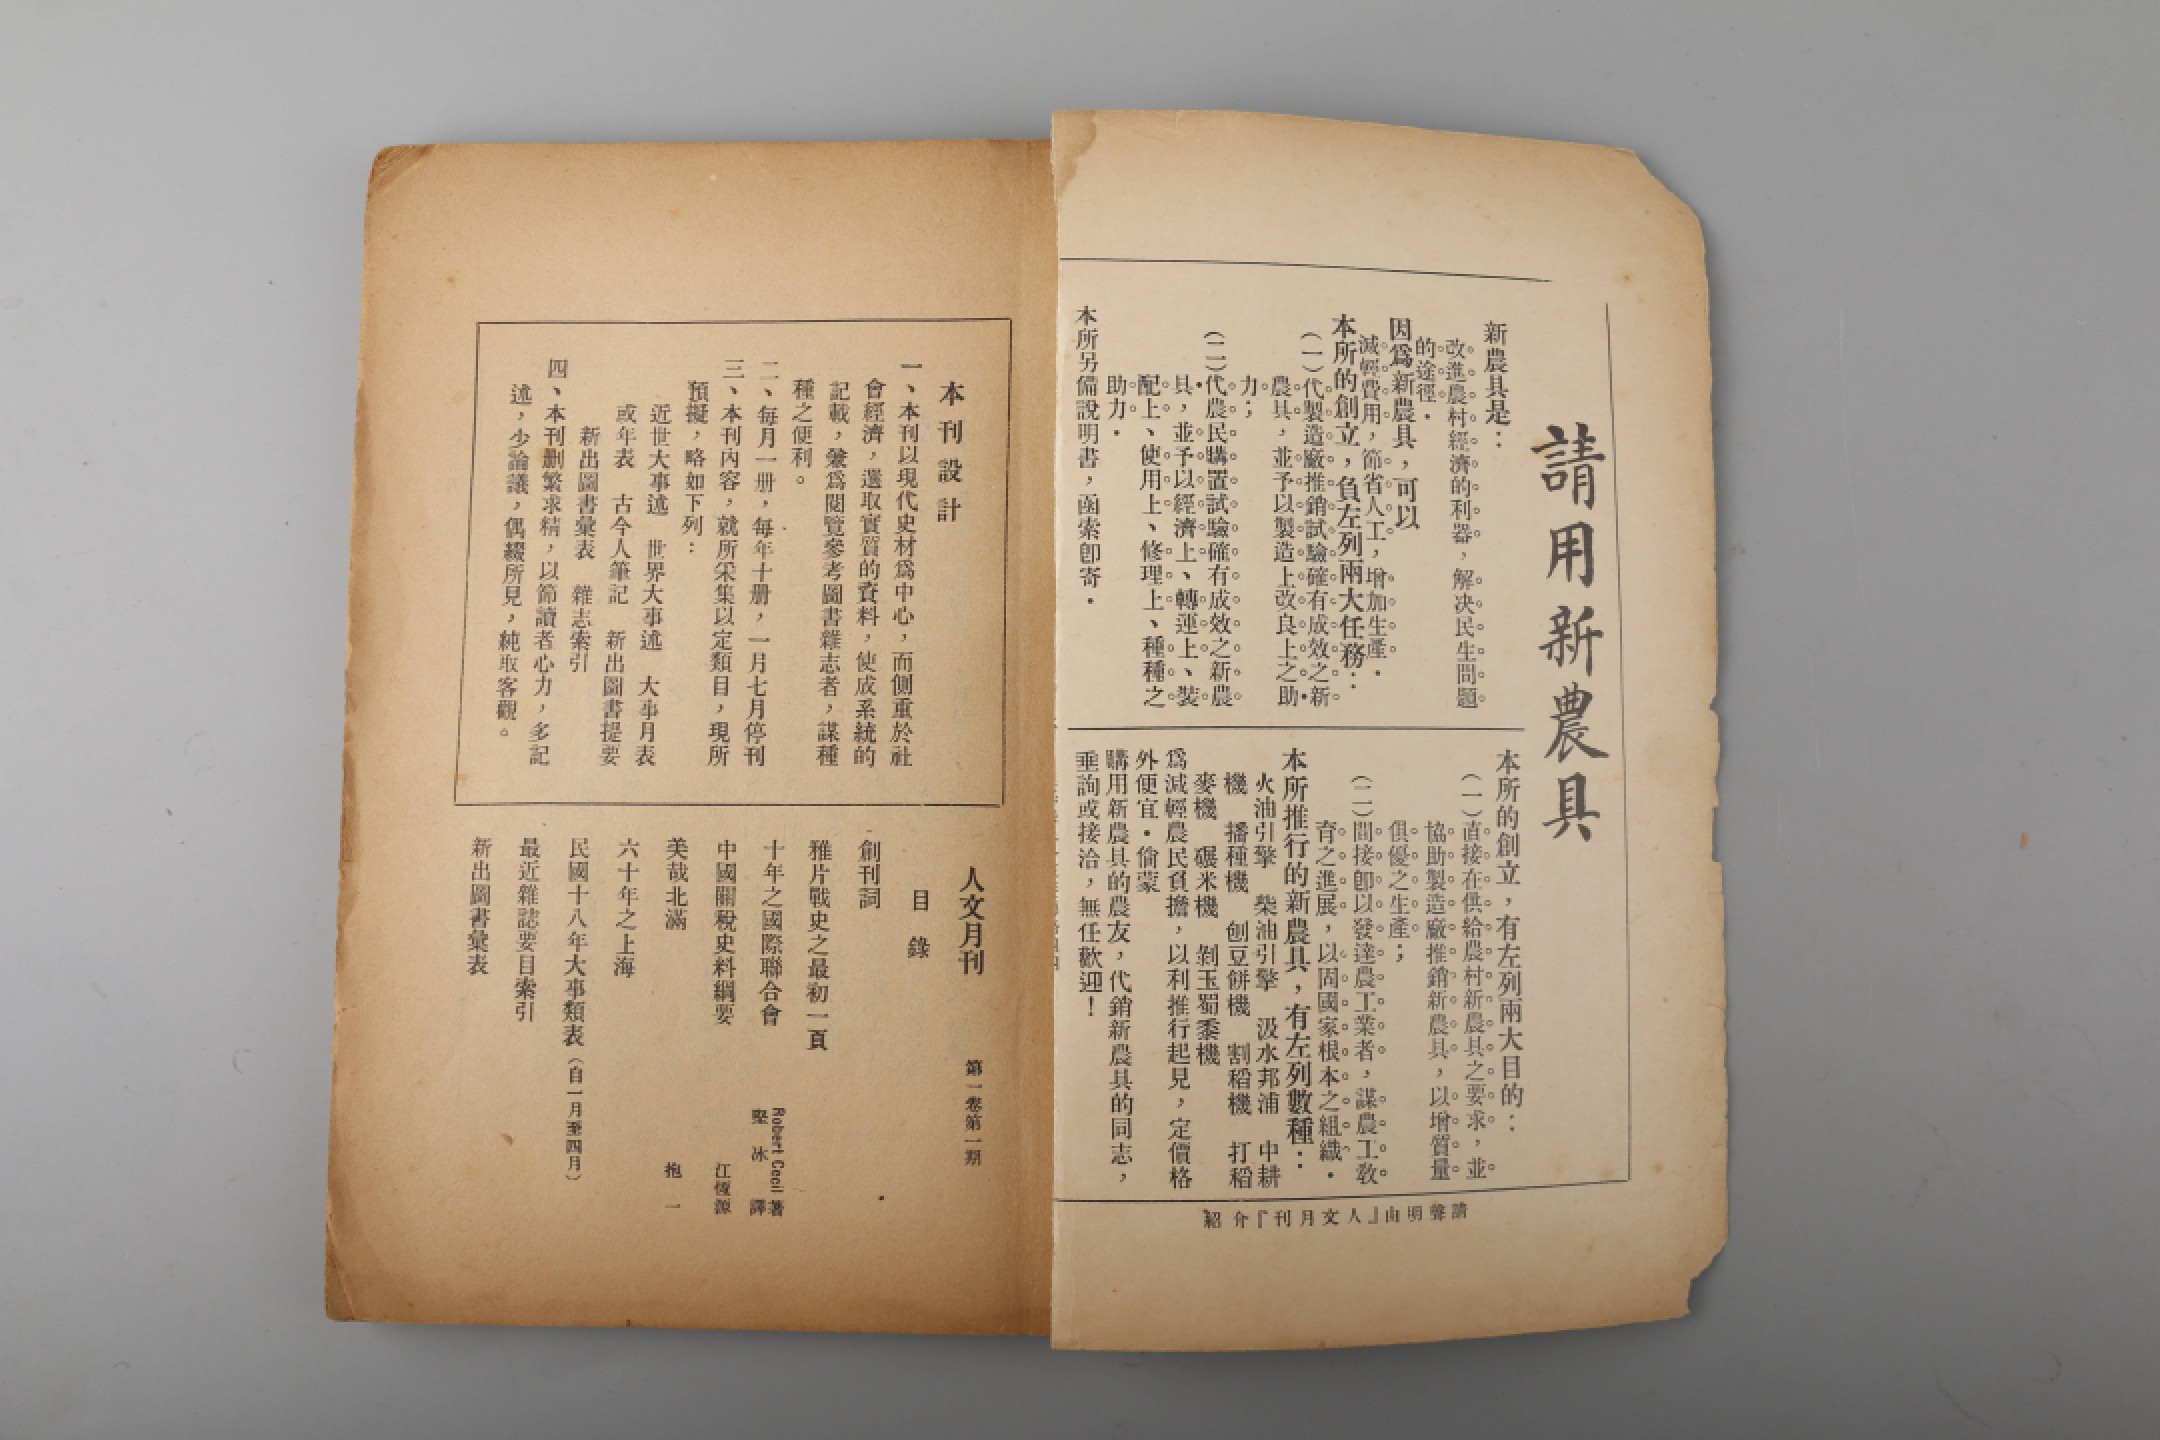 請用新農具
新農具是：
改進農村經濟的利器，解决民生問題
的途徑．
因爲新農具，可以
減輕費用，節省人工，增加生產．
本所的創立，負左列兩大任務：
（一）代製造廠推銷試驗確有成效之新
農具，並予以製造上改良上之助
力；
（二）代農民購置試驗確有成效之新農
具，並予以經濟上、轉運上、裝
配上、使用上、修理上、種種之
助力．
本所另備說明書，函索卽寄．
本所的創立，有左列兩大目的：
（一）直接在供給農村新農具之要求，並
協助製造廠推銷新農具，以增質量
俱優之生產；
（二）間接卽以發達農工業者，謀農工敎
育之進展，以固國家根本之組織．
本所推行的新農具，有左列數種：
火油引擎　柴油引擎　汲水邦浦　中耕
機　播種機　刨豆餅機　割稻機　打稻
麥機　碾米機　剝玉蜀黍機
爲減輕農民負擔，以利推行起見，定價格
外便宜．倘蒙
購用新農具的農友，代銷新農具的同志，
垂詢或接洽，無任歡迎！
請聲明由『人文月刊』介紹
本刊設計
一、本刊以現代史材爲中心，而側重於社
會經濟，選取實質的資料，使成系統的
記載，兼爲閱覽參考圖書雜志者，謀種
種之便利。
二、每月一册，每年十册，一月七月停刊
三、本刊內容，就所采集以定類目，現所
預擬，略如下列：
近世大事述　世界大事述　大事月表
或年表　古今人筆記　新出圖書提要
新出圖書彙表　雜志索引
四、本刊删繁求精，以節讀者心力，多記
述，少論議，偶綴所見，純取客觀。
人文月刊　第一卷第一期
目錄
創刊詞
雅片戰史之最初一頁
十年之國際聯合會　Robert Cecil 著
堅冰　譯
中國關稅史料綱要　江恆源
美哉北滿　抱一
六十年之上海
民國十八年大事類表（自一月至四月）
最近雜誌要目索引
新出圖書彙表